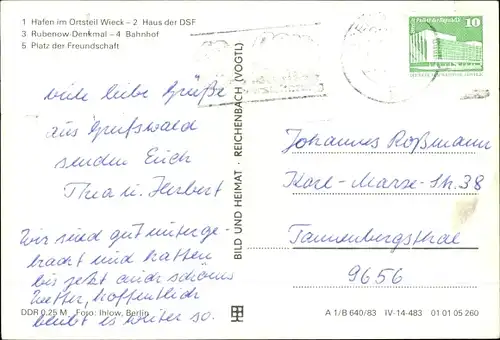 1 Hafen im Ortsteil Wieck – 2 Haus der DSF
3 Rubenow-Denkmal – 4 Bahnhof
5 Platz der Freundschaft
viele liebe Grüße
aus Greifswald
senden Euch
Thea u. Herbert
Wir sind gut unterge-
bracht und hatten
bis jetzt auch schönes
Wetter, hoffentlich
bleibt es weiter so.
DDR 0,25 M Foto: Ihlow, Berlin
BILD UND HEIMAT · REICHENBACH (VOGTL)
10
Johannes Roßmann
Karl-Marx-Str. 38
Tannenbergsthal
9656
A 1/B 640/83 IV-14-483 01 01 05 260